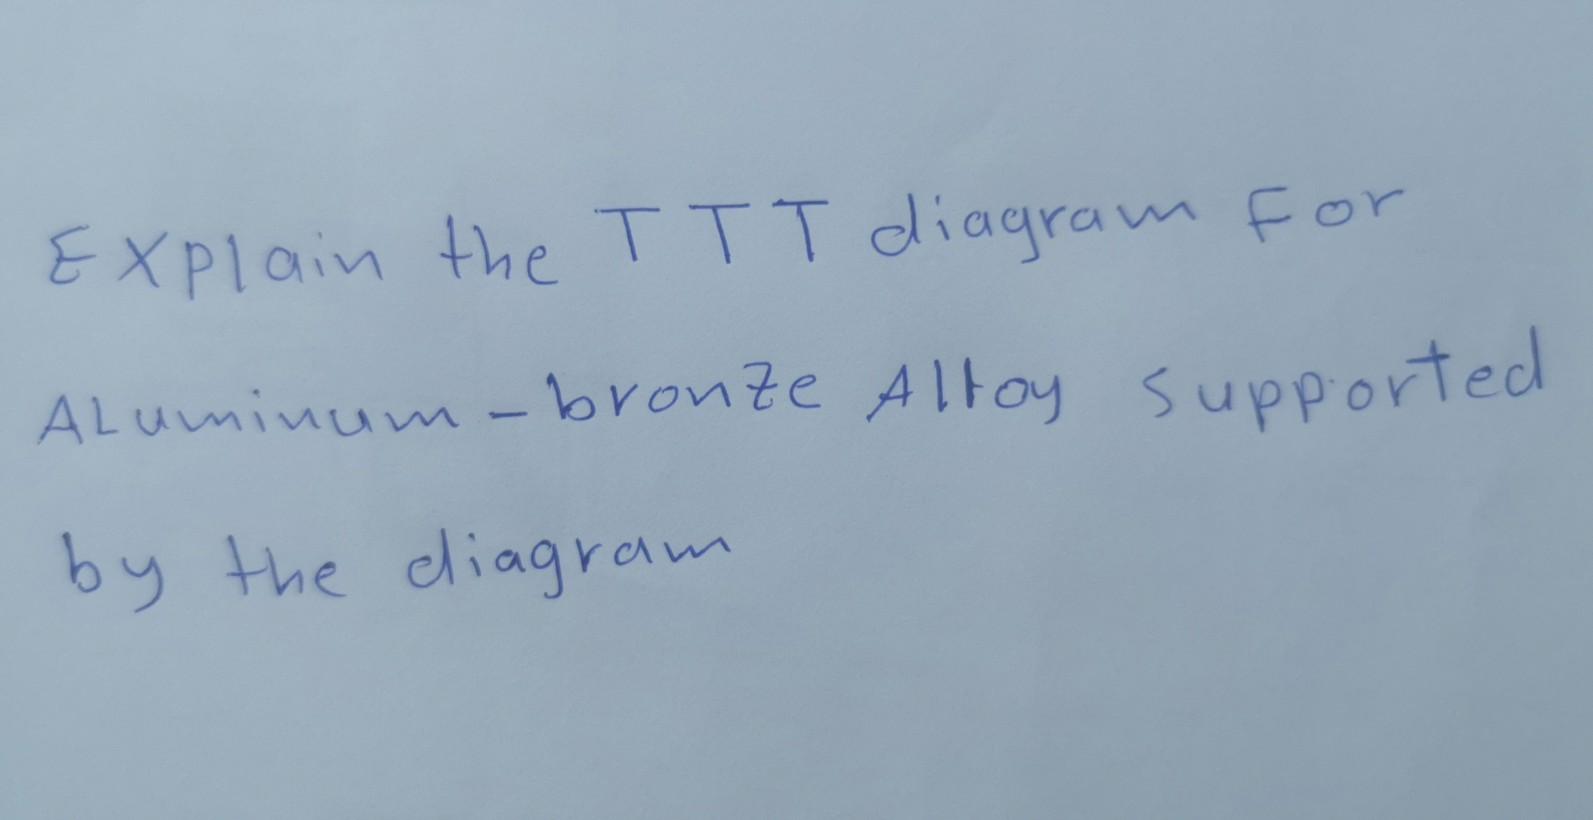 Explain the TTT diagram For
ALuminum - bronze Alloy supported
by the diagram